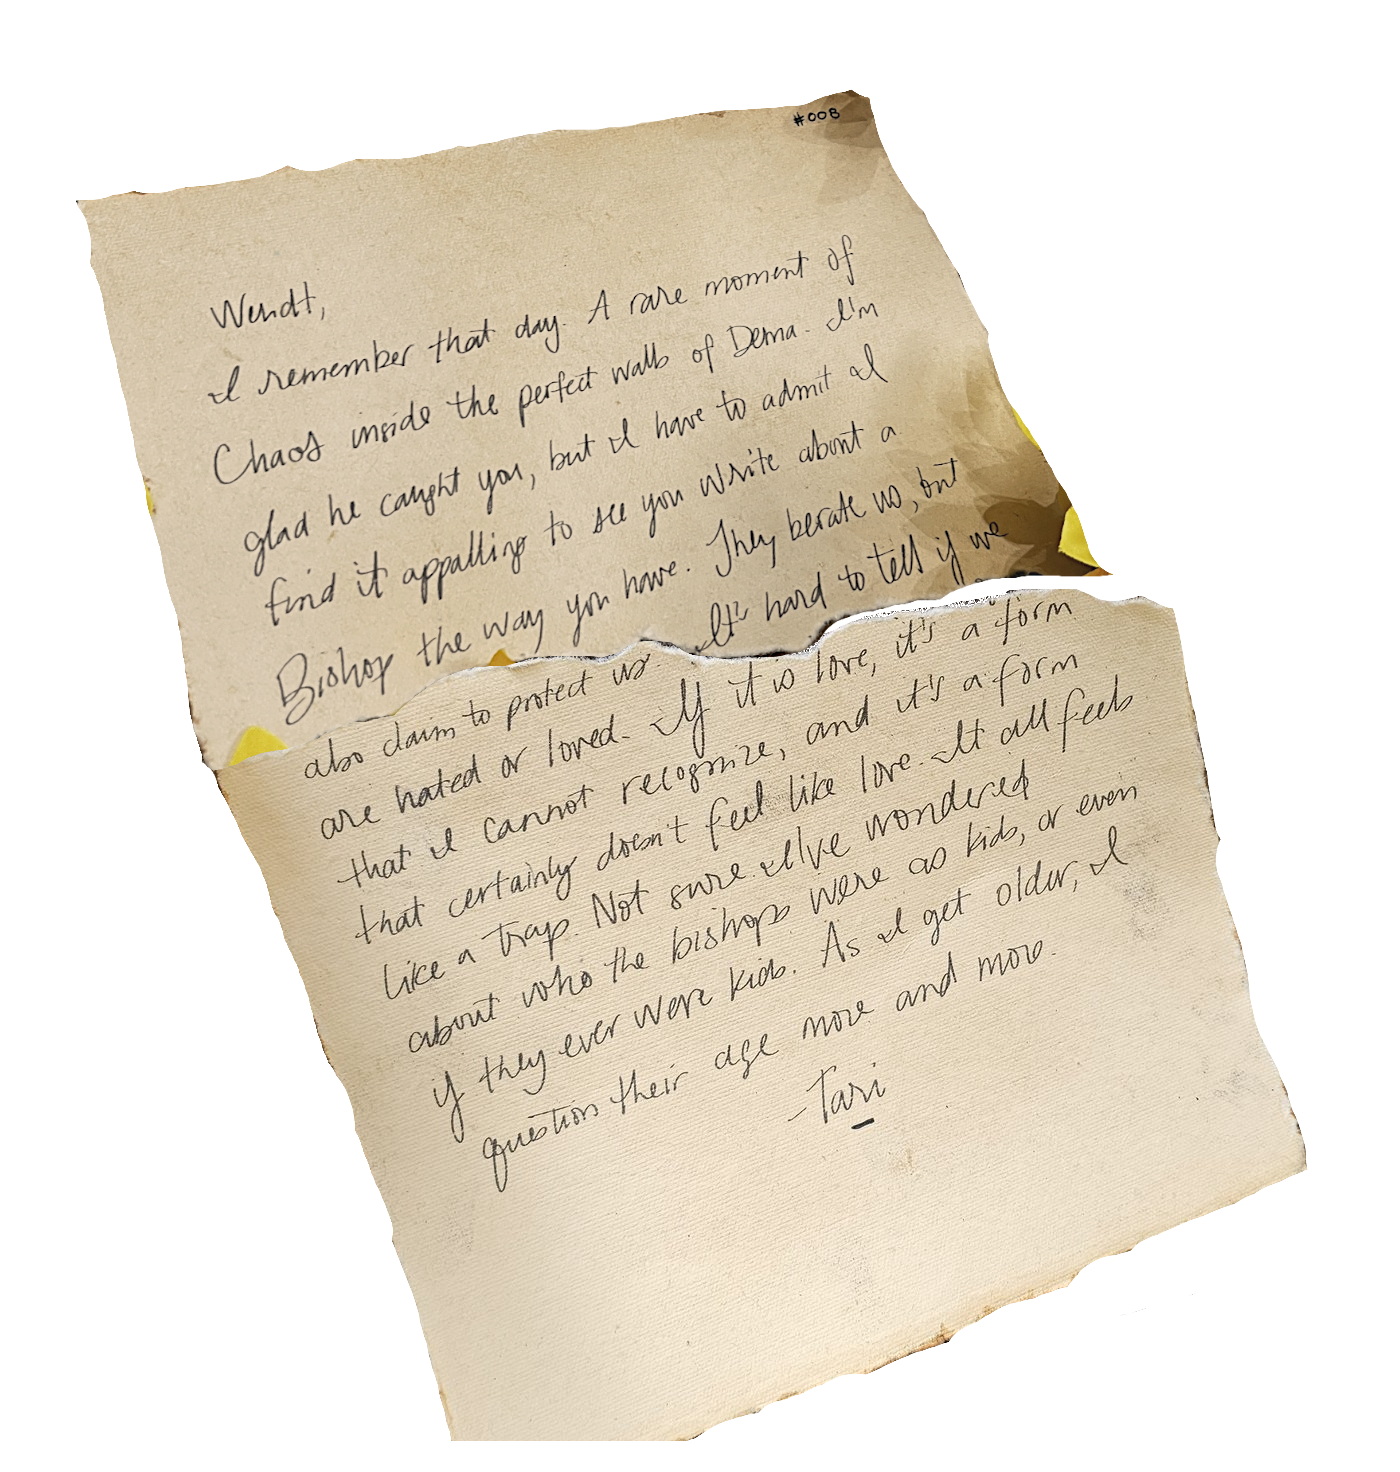 #008
Wendt,
I remember that day. A rare moment of
Chaos inside the perfect walls of Dema. I'm
glad he caught you, but I have to admit I
find it appalling to see you write about a
Bishop the way you have. They berate us, but
also claim to protect us. It's hard to tell if we
are hated or loved. If it is love, it's a form
that I cannot recognize, and it's a form
that certainly doesn't feel like love. It all feels
like a trap. Not sure. I've wondered
about who the bishops were as kids, or even
if they ever were kids. As I get older, I
question their age more and more.
-Tari